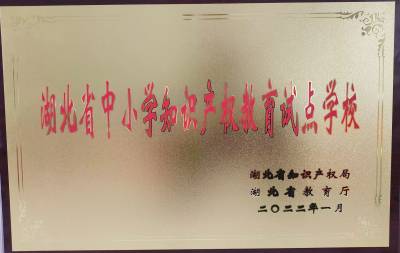 湖北省中小学知识产权教育试点学校
湖北省知识产权局
湖北省教育厅
二〇二二年一月